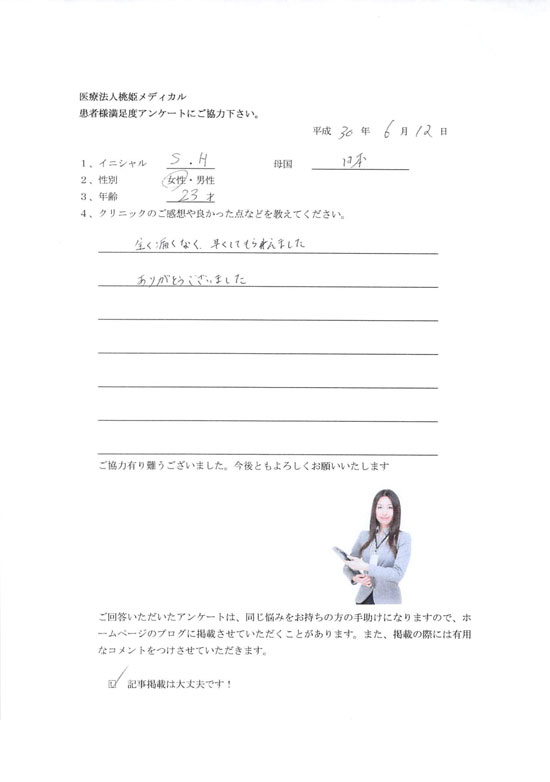 医療法人桃姫メディカル
患者様満足度アンケートにご協力下さい。
平成 30 年 6 月 12 日
1、イニシャル S.H 母国 日本
2、性別 女性・男性
3、年齢 23才
4、クリニックのご感想や良かった点などを教えてください。
全く痛くなく、早くしてもらえました
ありがとうございました
ご協力有り難うございました。今後ともよろしくお願いいたします
ご回答いただいたアンケートは、同じ悩みをお持ちの方の手助けになりますので、ホ
ームページのブログに掲載させていただくことがあります。また、掲載の際には有用
なコメントをつけさせていただきます。
☑ 記事掲載は大丈夫です！